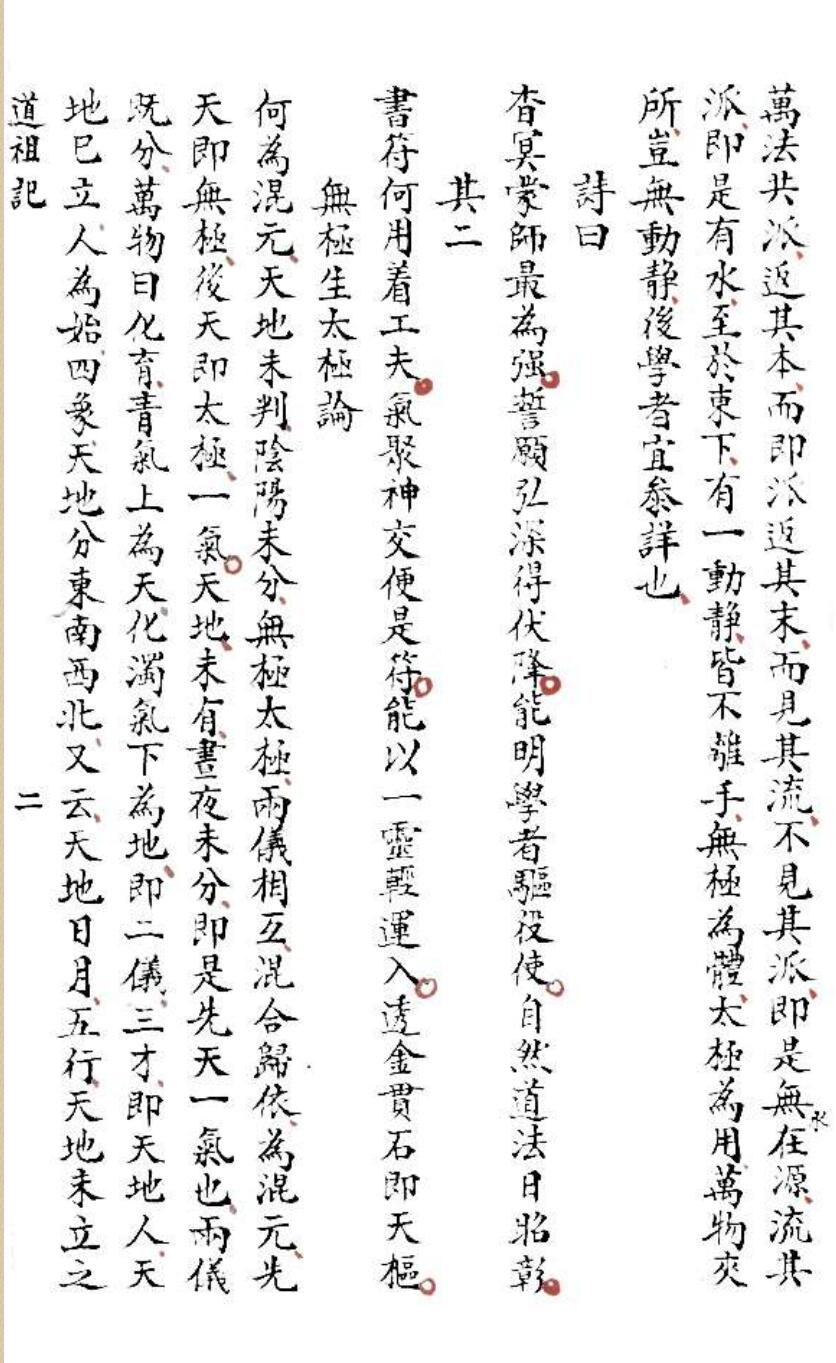 萬法共派、返其本、而即派返其末、而見其流、不見其派、即是無水在源、流其
派、即是有水、至於東下、有一動靜、皆不離手、無極為體、太極為用、萬物夾
所、豈無動靜、後學者宜叅詳也、
詩曰
杳冥蒙師最為强誓願弘深得伏降能明學者驅役使自然道法日昭彰
其二
書符何用着工夫氣聚神交便是符能以一靈輕運入透金貫石即天樞
無極生太極論
何為混元、天地未判、陰陽未分、無極太極、兩儀相互、混合歸依、為混元、先
天即無極、後天即太極、一氣天地、未有、晝夜未分、即是先天一氣也、兩儀
既分、萬物曰化育、青氣上為天化濁氣下為地、即二儀、三才、即天地人、天
地巳立、人為始、四象天地分東南西北、又云、天地日月、五行、天地未立之
道祖記 二